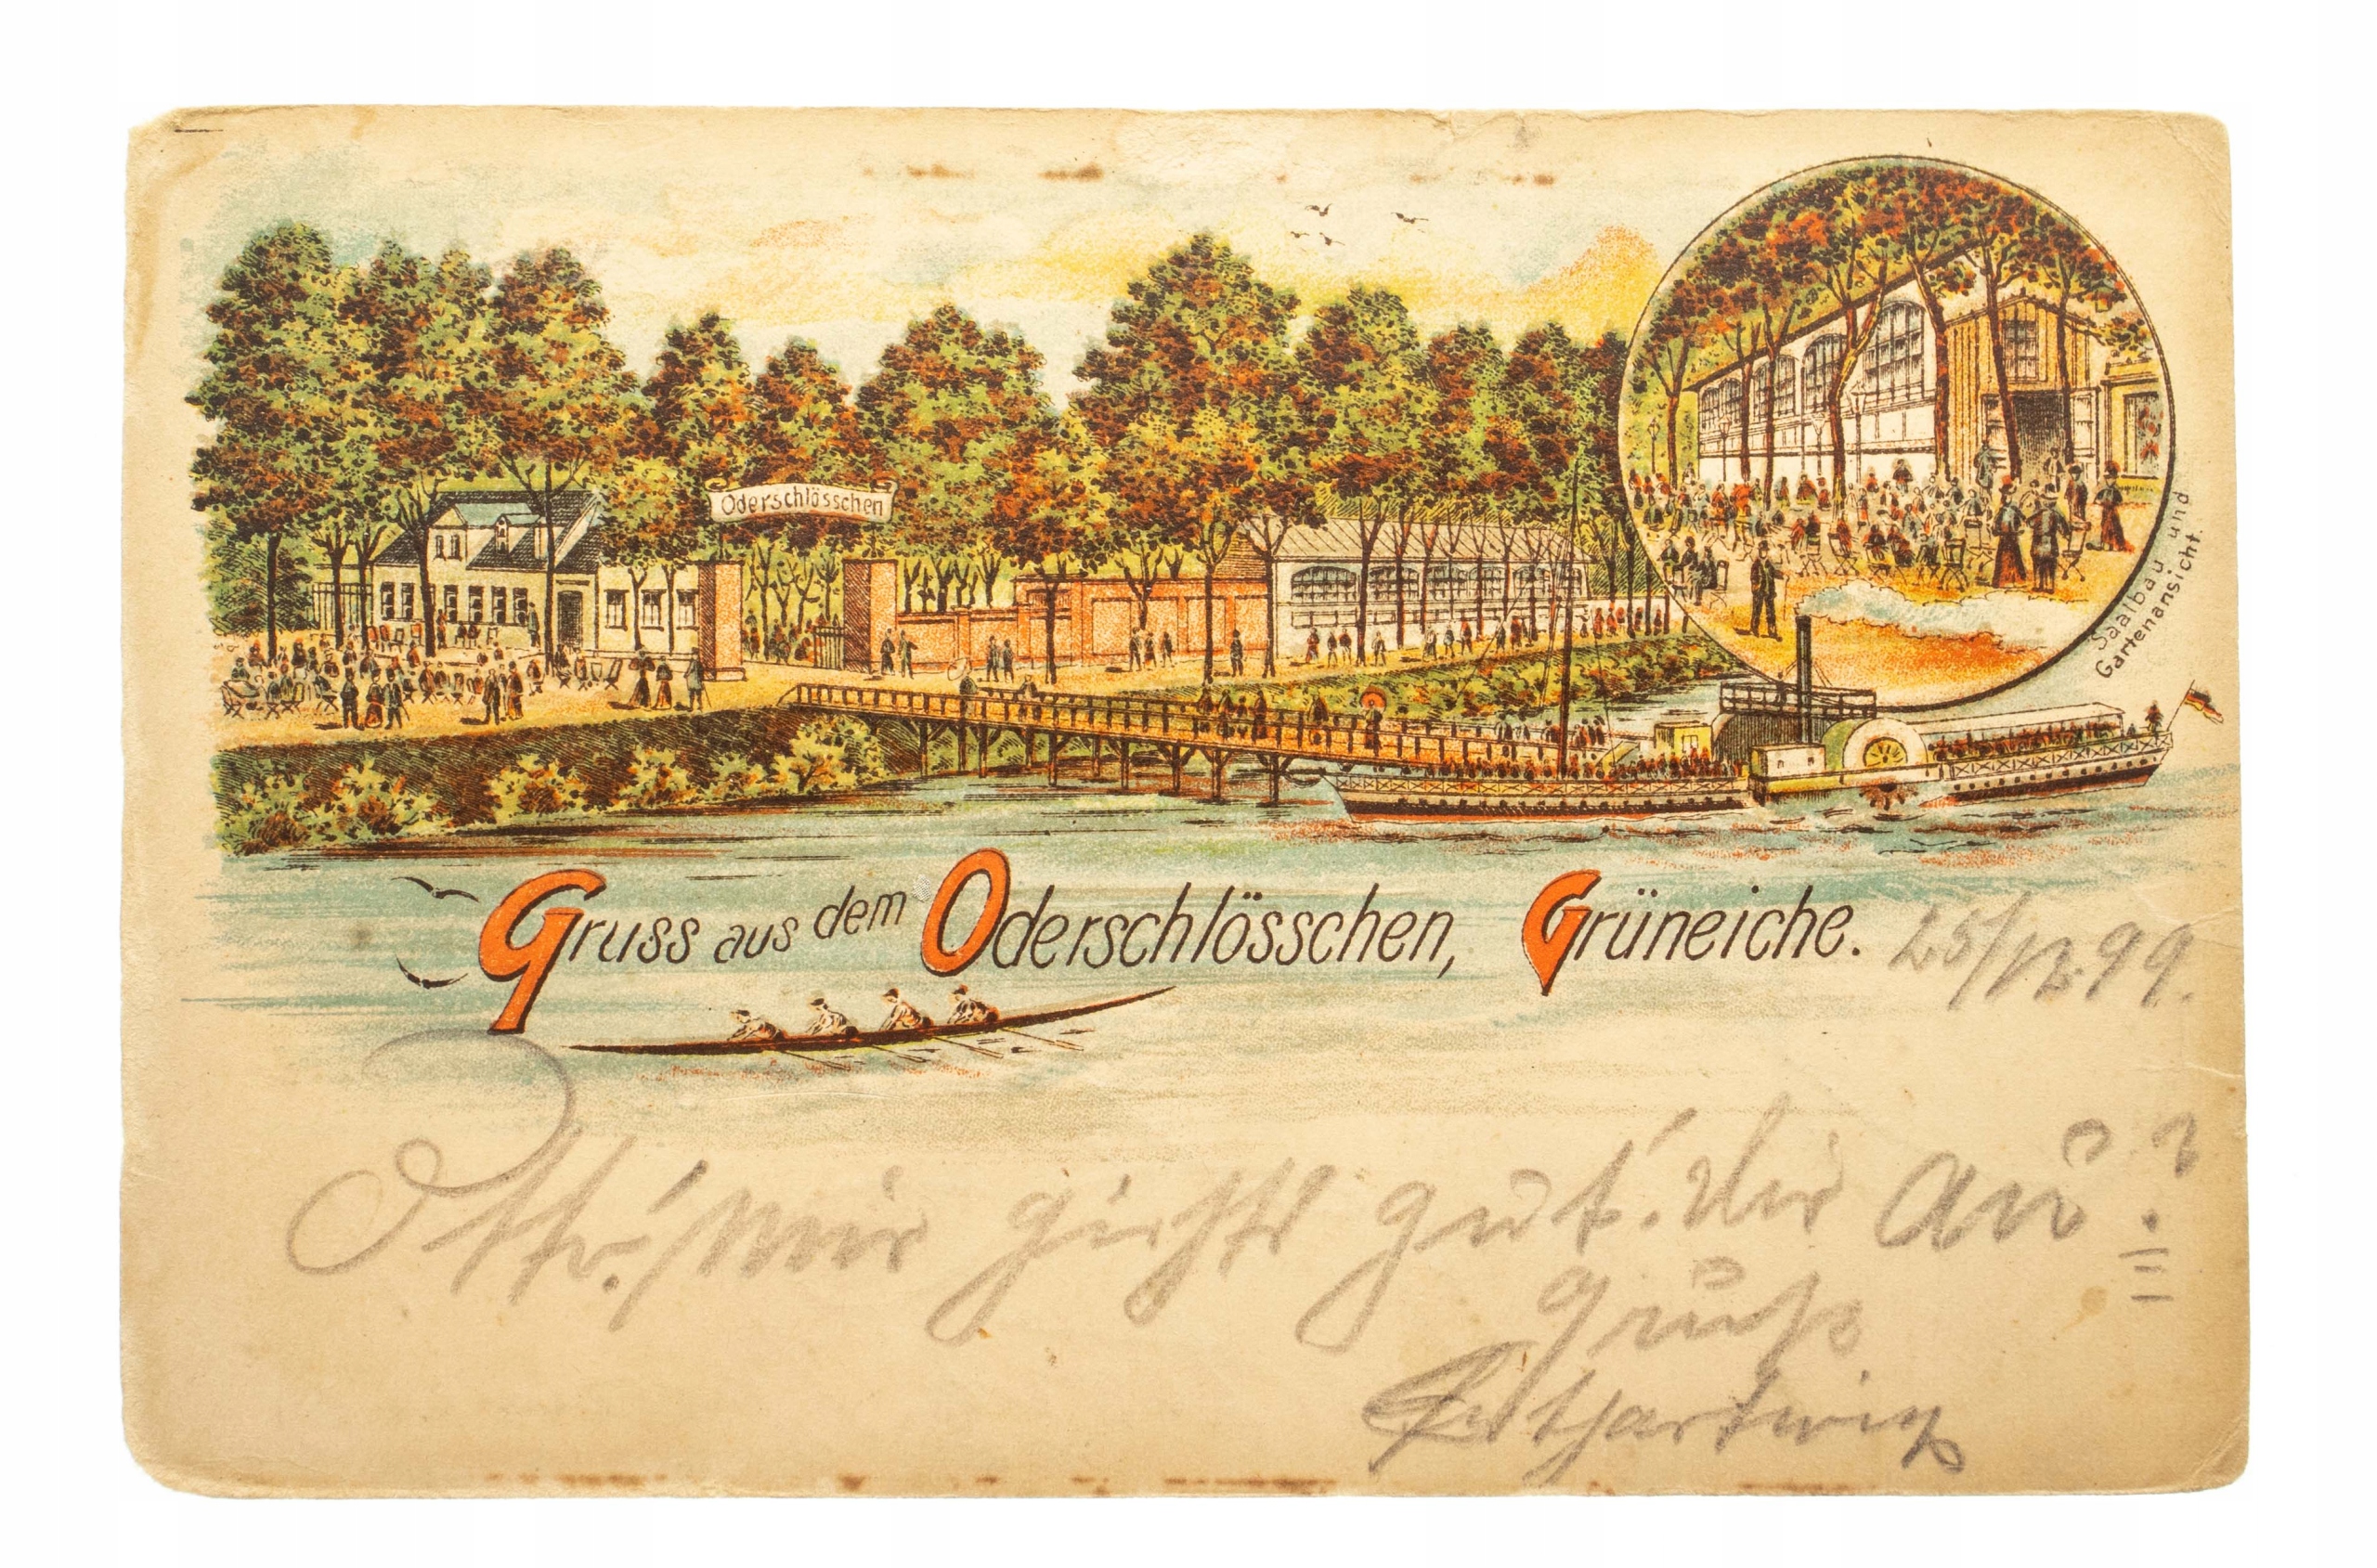 Oderschlösschen
Saalbau und
Gartenansicht.
Gruss aus dem Oderschlösschen, Grüneiche.
25/12.99.
mir geht's gut! Dir au
Gruß